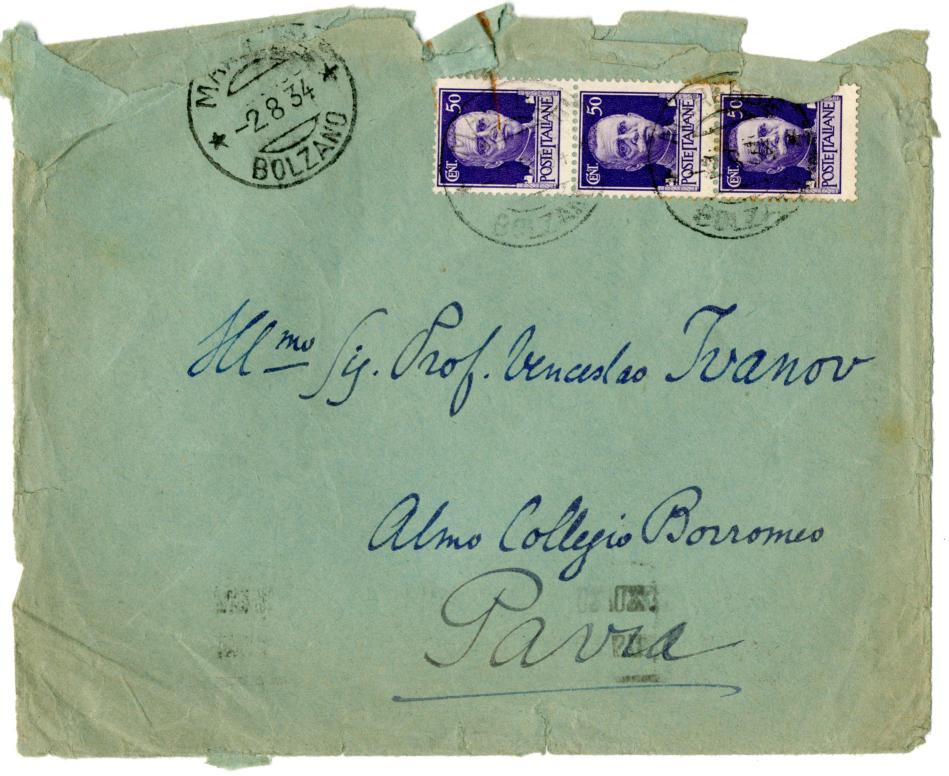 -2.8.34
BOLZANO
50
CENT.
POSTE ITALIANE
50
CENT.
POSTE ITALIANE
50
CENT.
POSTE ITALIANE
BOLZANO
BOLZA
Ill.mo Sig. Prof. Venceslao Ivanov
Almo Collegio Borromeo
Pavia